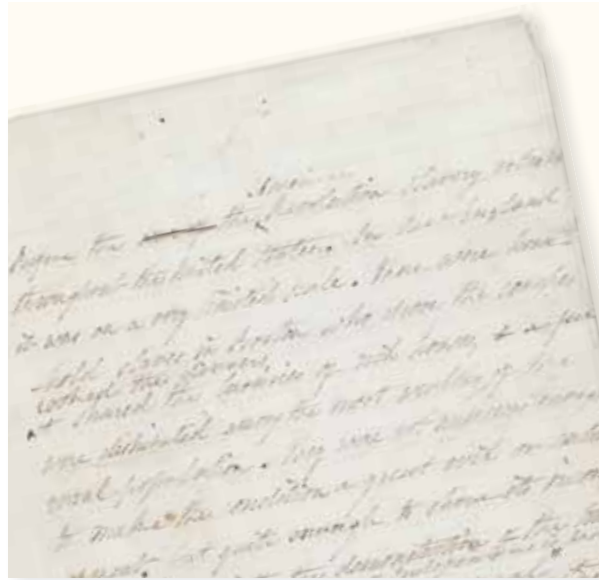 American
Before the the Revolution Slavery existed
throughout the United States. In New England
it was on a very limited scale. There were house-
hold slaves in Boston, who drove the coaches
cooked the dinners,
& shared the luxuries of rich houses; & a few
were distributed among the most wealthy of the
rural population. They were not numerous enough
to make the condition a great evil or
but quite enough to show its
the demoralization of the